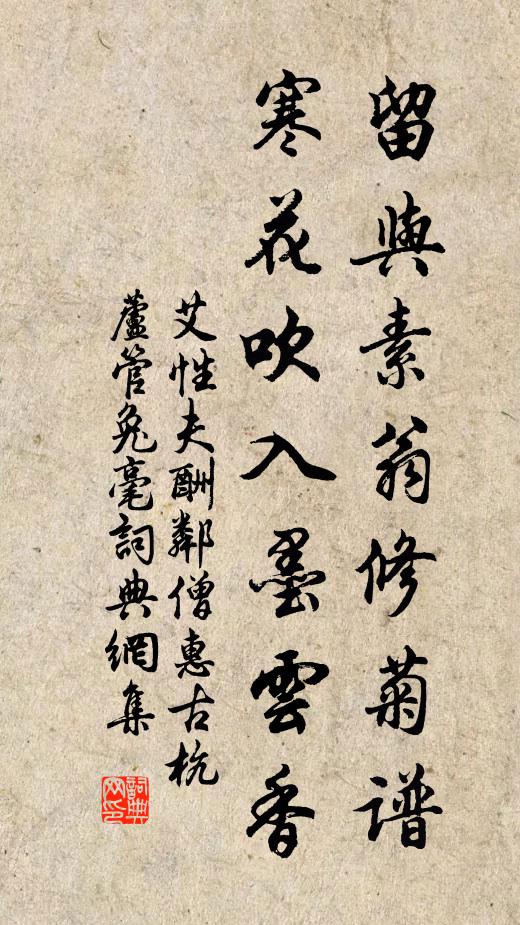 留與素翁修菊譜
寒花吹入墨雲香
艾性夫酬鄰僧惠古杭
蘆管兔毫詞典網集
詞典网印